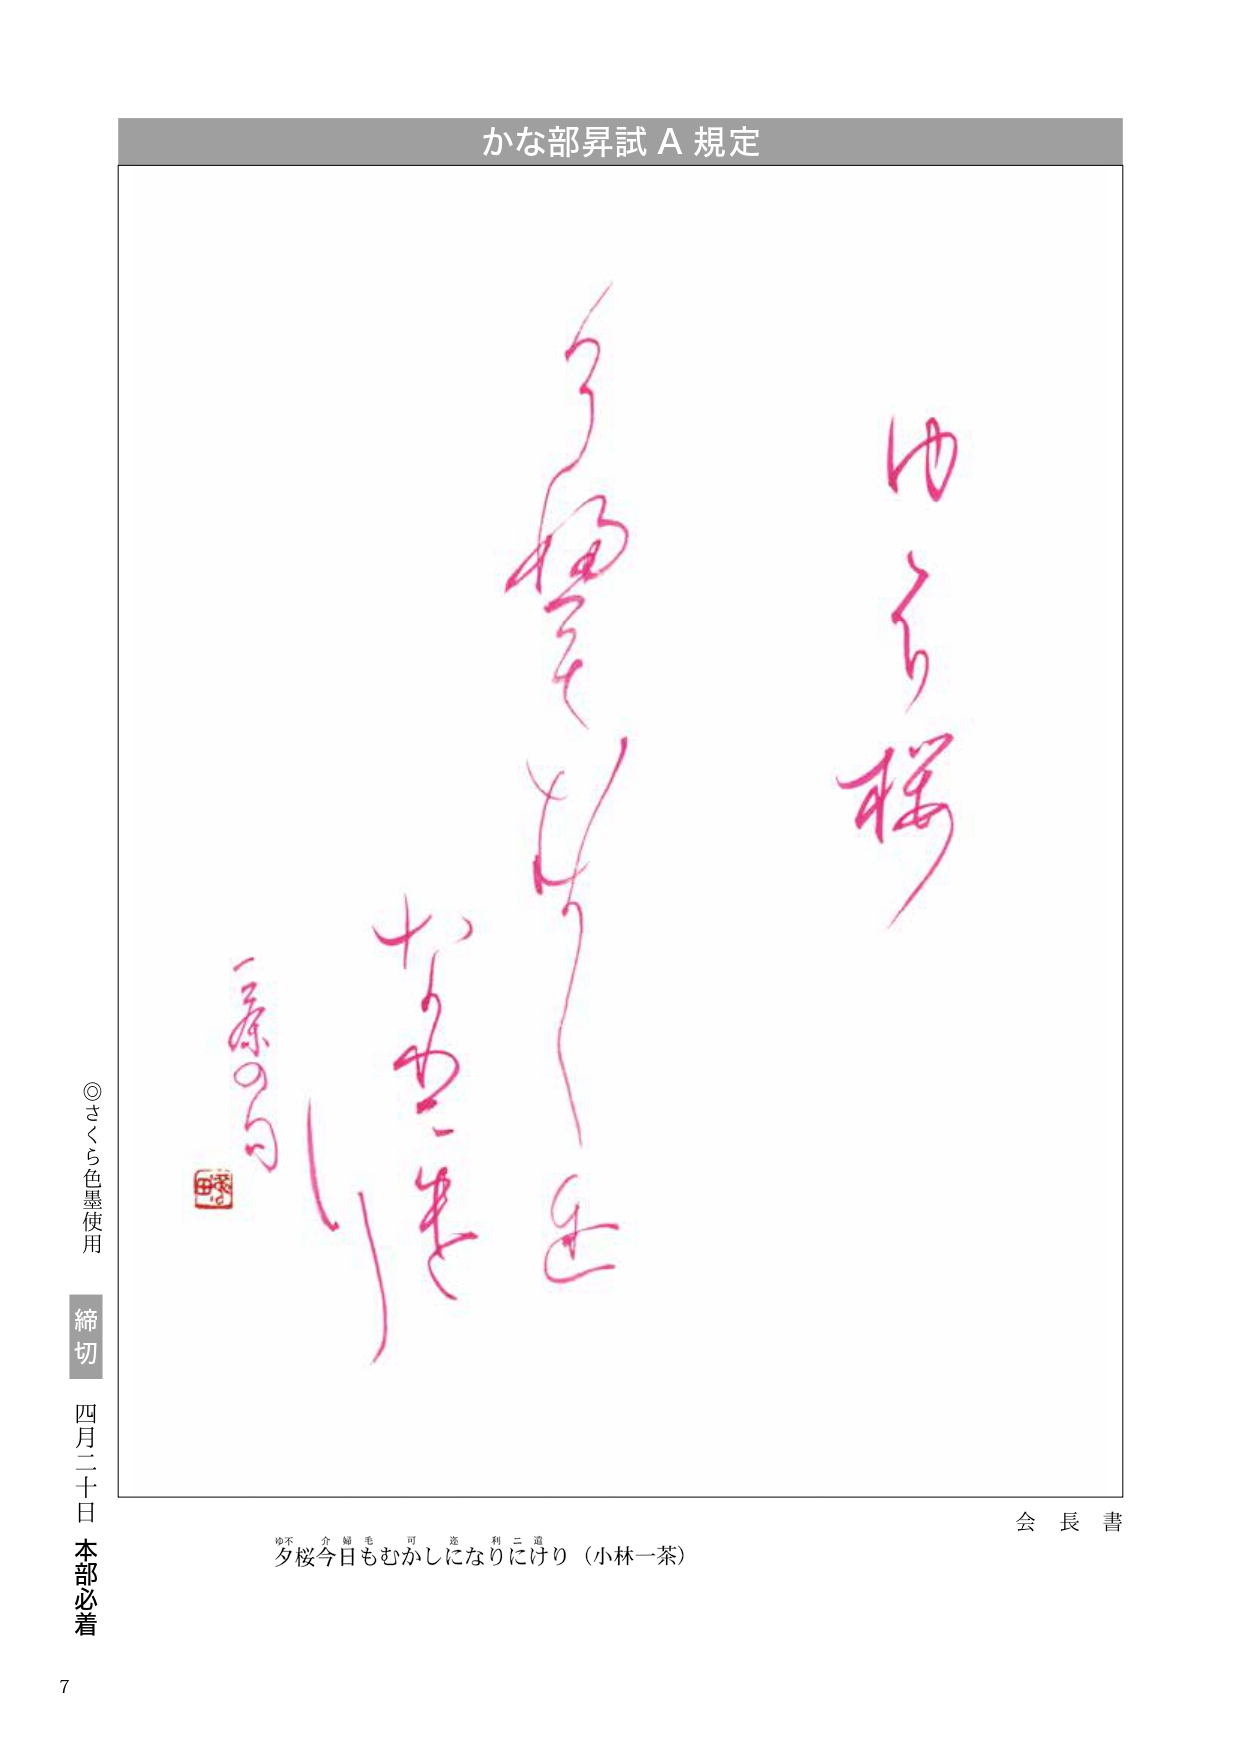 かな部昇試 A 規定
ゆふ桜
介婦毛むかし迩
なり二遣
り
一茶の句
会長書
ゆ不 介婦毛 可 迩 利二遣
夕桜今日もむかしになりにけり（小林一茶）
◎さくら色墨使用
締切 四月二十日 本部必着
7